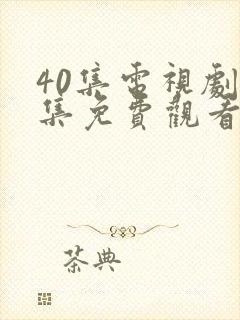 40集電視劇
集免費觀看
茶典